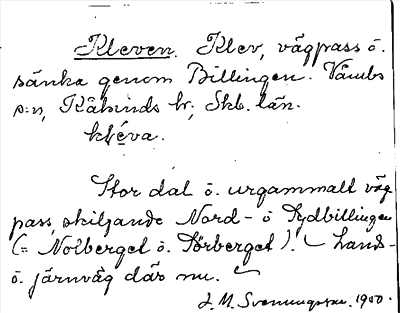 Kleven. Klev, vägpass ö.
sänka genom Billingen. Våmbs
s:n, Kåkinds hr, Skb. län.
kléva.
Stor dal ö. urgammalt väg
pass, skiljande Nord- ö Sydbillingen
(= Norberget ö. Sörberget). Lands-
ö. järnväg där nu.
J. M. Svenningsson. 1900.